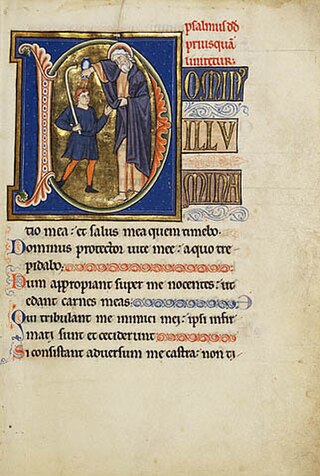 psalmus dd
priusquā
liniretur.
D
OMIN'
ILLV
MINA
tio mea: et salus mea quem timebo.
Dominus protector uite mee: a quo tre
pidabo.
Dum appropiant super me nocentes: ut
edant carnes meas.
Qui tribulant me inimici mei: ipsi infir
mati sunt et ceciderunt
Si consistant aduersum me castra: non ti